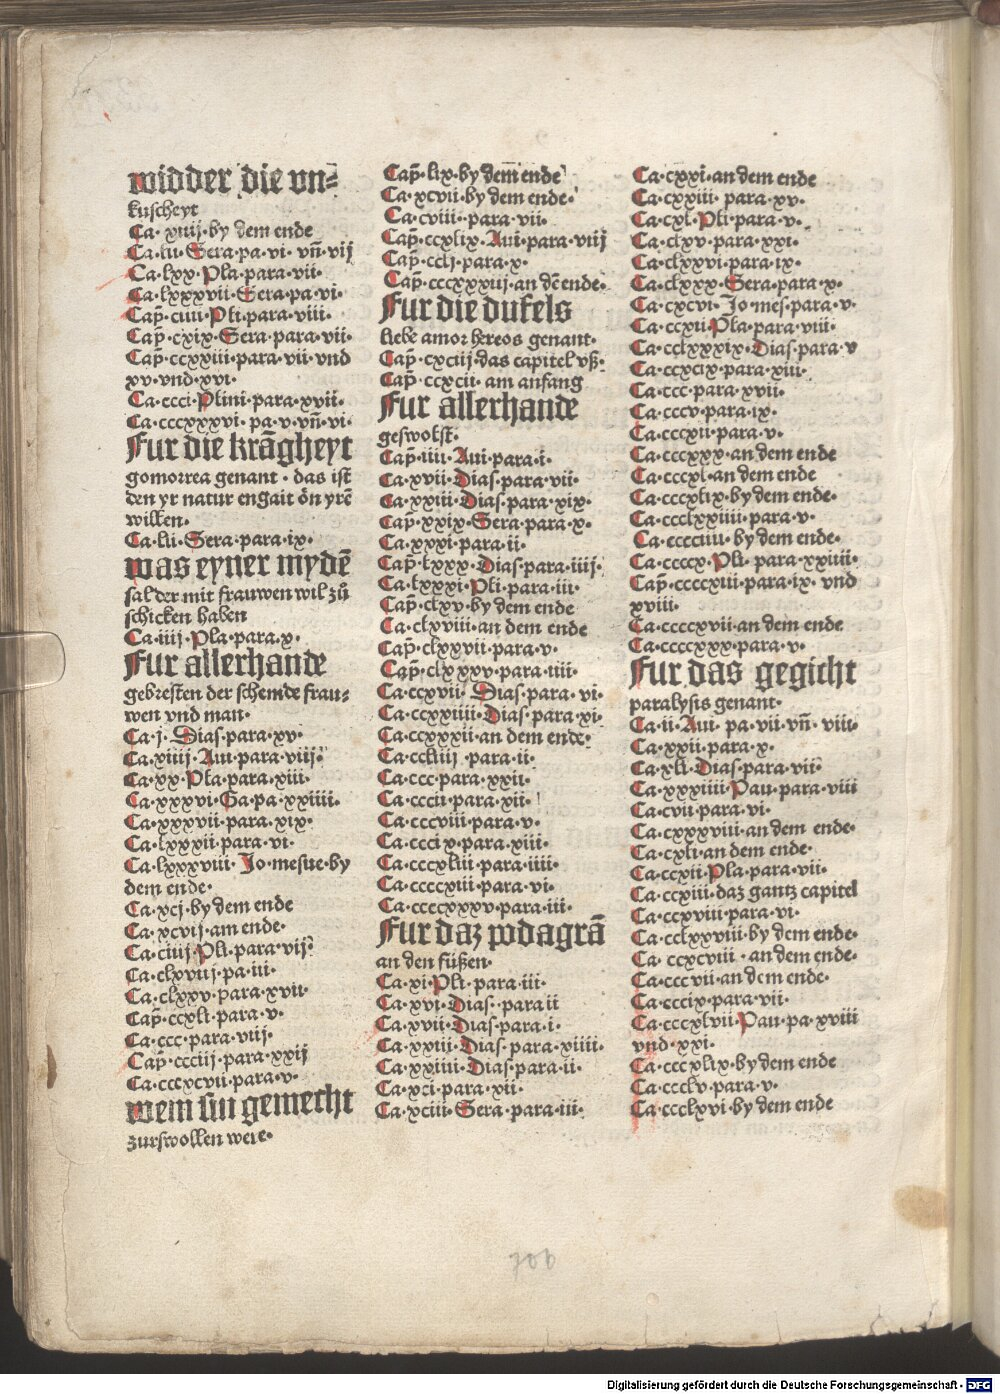 widder die vn=
kuscheyt
Ca· xiiij·by dem ende
Ca·lii·Sera·pa·vi· vn̄·vij
Ca·lxx·Pla·para·vii·
Ca·lxxxvii·Sera·pa·vi·
Cap̄·ciiii·Pli·para·viii·
Cap̄·cxix·Sera·para·vii·
Cap̄·ccxxiii·para·vii·vnd
xv·vnd·xvi·
Ca·ccci·Plini·para·xvii·
Ca·cccxxxvi· pa·v·vn̄·vi·
Fur die krāgheyt
gomorrea genant · das ist
den yr natur engait ōn yrē
willen·
Ca·lii·Sera·para·ix·
was eyner mydē
sal der mit frauwen wil zū
schicken haben
Ca·iiij·Pla·para·x·
Fur allerhande
gebresten der schemde frau=
wen vnd man·
Ca·j· Dias·para·xv·
Ca·xiiij·Aui·para·viij·
Ca·xx·Pla·para·xiii·
Ca·xxxvi·Ga·pa·xxiiii·
Ca·xxxvii·para·xix·
Ca·lxxxii·para·vi·
Ca·lxxxviii·Jo·mesue·by
dem ende·
Ca·xcj·by dem ende
Ca·xcvij·am ende·
Ca·ciiij·Pli·para·vij·
Ca·clxviij·pa·iii·
Ca·clxxv·para·xvii·
Cap̄·ccxli·para·v·
Ca·ccc·para·viij·
Cap̄·ccciij·para·xxij
Ca·cccxcvii·para·v·
wem sin gemecht
zurswollen were·
Cap̄·lix·by dem̄ ende
Ca·xcvii·by dem ende·
Ca·cviii·para·vii·
Cap̄·ccxlix·Aui·para·viij
Cap̄·cclj·para·x·
Cap̄·cccxxxiij·an dē ende·
Fur die dufels
liebe amor hereos genant·
Cap̄·cxciij·das capitel vß·
Cap̄·ccxcii·am anfang
Fur allerhande
geswolst·
Cap̄·iiii·Aui·para·i·
Ca·xvii·Dias·para·vii·
Ca·xxiii·Dias·para·xix·
Cap̄·xxix·Sera·para·x·
Ca·xxxi·para·ii·
Cap̄·lxxx·Dias·para·iiij·
Ca·lxxxi·Pli·para·iii·
Cap̄·clxv·by dem ende
Ca·clxviii·an dem ende
Cap̄·clxxvii·para·v·
Cap̄·clxxxv·para·iiii·
Ca·ccxvii·Dias·para·vi·
Ca·ccxxiiii·Dias·para·xi·
Ca·ccxxxii·an dem ende·
Ca·ccliiij·para·ii·
Ca·ccc·para·xxii·
Ca·cccii·para·xii·
Ca·cccviii·para·v·
Ca·cccix·para·xiii·
Ca·cccxliii·para·iiii·
Ca·ccccxiii·para·vi·
Ca·ccccxxxv·para·iii·
Fur daz podagrā
an den füßen·
Ca·xi·Pli·para·iii·
Ca·xvi·Dias·para ii
Ca·xvii·Dias·para·i·
Ca·xxiii·Dias·para·xiiii·
Ca·xxiiii·Dias·para·ii·
Ca·xci·para·xii·
Ca·xciii·Sera·para·iii·
Ca·cxxi·an dem ende
Ca·cxxiii·para·xv·
Ca·cxl·Pli·para·v·
Ca·clxv·para·xxi·
Ca·clxxvi·para·ix·
Ca·clxxx·Sera·para·x·
Ca·cxcvi·Jo·mes·para·v·
Ca·ccxii·Pla·para·viii·
Ca·cclxxxix·Dias·para·v
Ca·ccxcix·para·xiii·
Ca·ccc·para·xvii·
Ca·cccv·para·ix·
Ca·cccxii·para·v·
Ca·cccxxx·an dem ende
Ca·cccxl·an dem ende
Ca·cccxlix·by dem ende·
Ca·ccclxxiiii·para·v·
Ca·cccciiii·by dem ende·
Ca·ccccx·Pli·para·xxiiii·
Cap̄·ccccxiii·para·ix·vnd
xviii·
Ca·ccccxvii·an dem ende
Ca·ccccxxx·para·v·
Fur das gegicht
paralysis genant·
Ca·ii·Aui·pa·vii·vn̄·viii·
Ca·xxii·para·x·
Ca·xli·Dias·para·vii·
Ca·xxxiiii·Pau·para·viii
Ca·cvii·para·vi·
Ca·cxxxviii·an dem ende·
Ca·cxli·an dem ende·
Ca·ccxii·Pla·para·vii·
Ca·ccxiii·daz gantz capitel
Ca·ccxviii·para·vi·
Ca·cclxxviii·by dem ende·
Ca·ccxcviii·an dem ende·
Ca·cccvii·an dem ende·
Ca·cccix·para·vii·
Ca·cccxlvii·Pau·pa·xviii
vnd·xxi·
Ca·cccxlix·by dem ende
Ca·ccclv·para·v·
Ca·ccclxvi·by dem ende
706
Digitalisierung gefördert durch die Deutsche Forschungsgemeinschaft - DFG